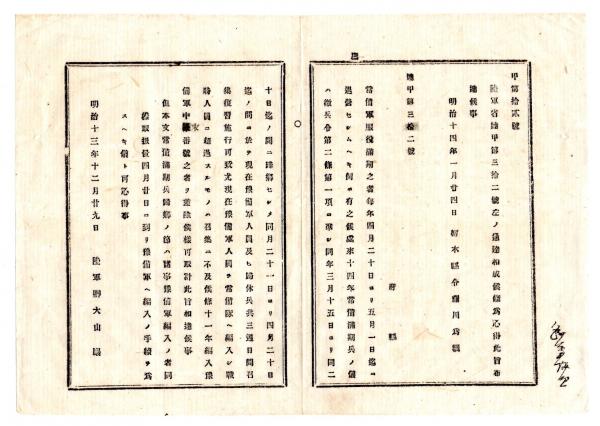 甲第拾貳號
陸軍省達甲第三拾二號左ノ通達相成候條爲心得此旨布
達候事
明治十四年一月廿四日 栃木縣令鍋島幹
達甲第三拾二號
府縣
常備軍服役滿期之者每年四月二十日ヨリ五月一日迄ニ
退營セシムヘキ例ニ有之候處來十四年常備滿期兵ノ儀
ハ徵兵令第二條第一項ニ準シ同年三月十五日ヨリ同二
十日迄ノ間ニ歸鄕セシメ同月二十一日ヨリ四月二十日
迄ノ間ニ於テ現在豫備軍人員及ヒ歸休兵共三週日間召
集復習施行可致尤現在豫備軍人員ヲ常備隊ヘ編入シ戰
時人員ニ超過スルモノハ召集ニ不及候條十一年編入豫
備軍中末番號之者ヲ差除候樣可取計此旨相達候事
但本文常備滿期兵歸鄕ノ節ハ諸事豫備軍編入ノ者同
樣取扱置四月廿日ニ到リ豫備軍ヘ編入ノ手續ヲ爲
スヘキ儀ト可心得事
明治十三年十二月廿九日 陸軍卿大山巖